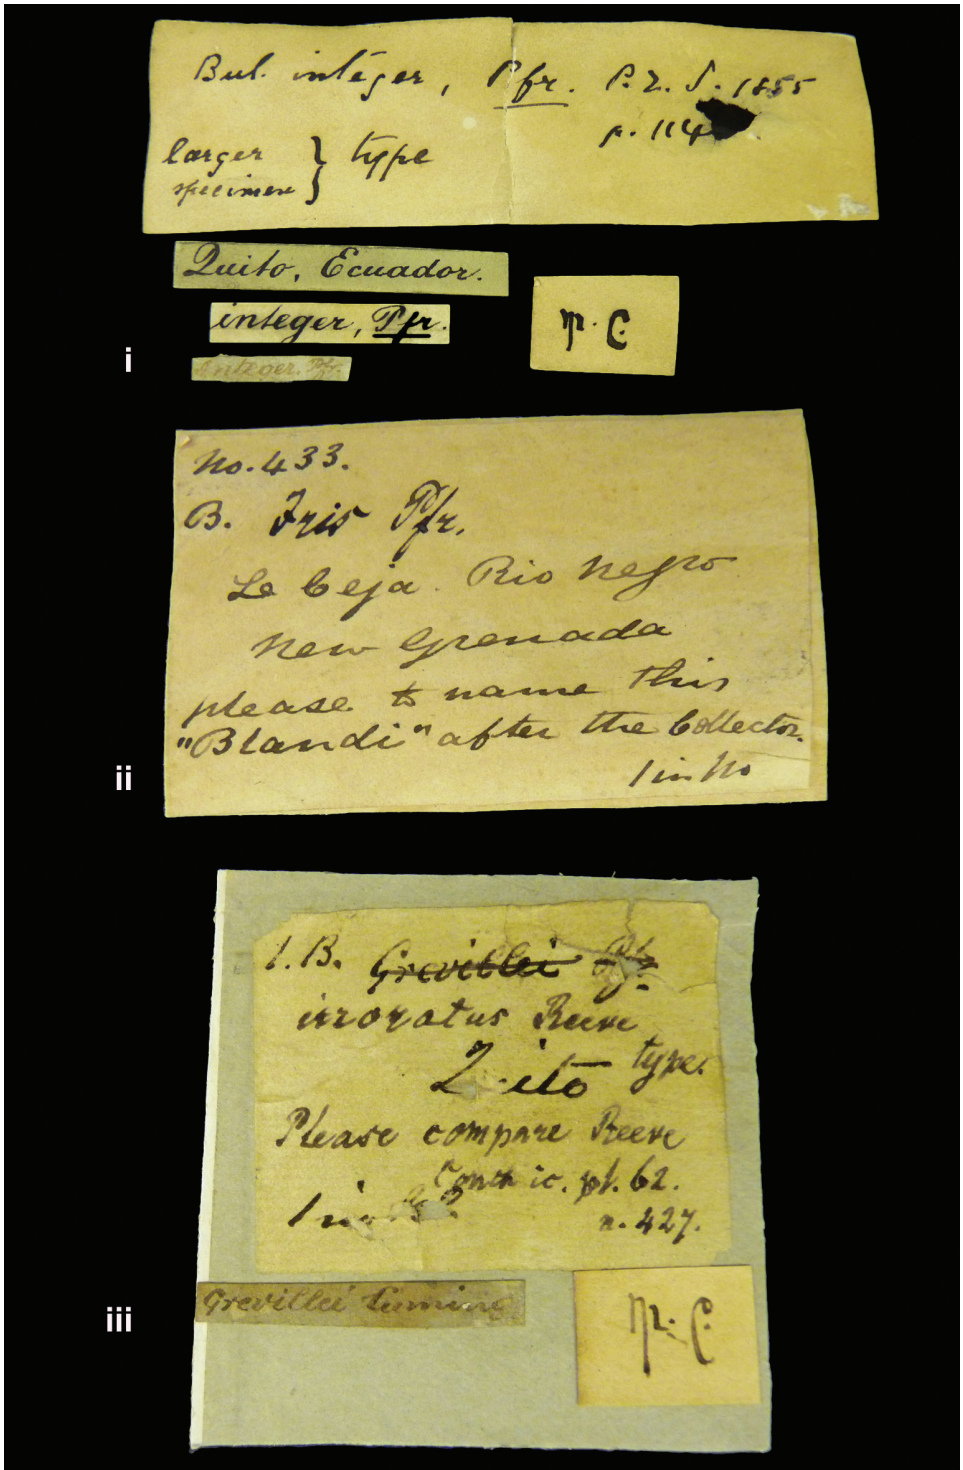 Bul. integer, Pfr. P.Z.S. 1855
p. 114
larger } type
specimen
Quito, Ecuador.
integer, Pfr.
M. C
integer. Pfr.
i
No. 433.
B. Iris Pfr.
La Ceja. Rio Negro
New Grenada
please to name this
"Blandi" after the Collector.
1 in No
ii
1. B. Grevillei Pfr.
irroratus Reeve
type.
Quito
Please compare Reeve
Conch ic. pl. 62.
n. 427.
Grevillei
M. C.
iii